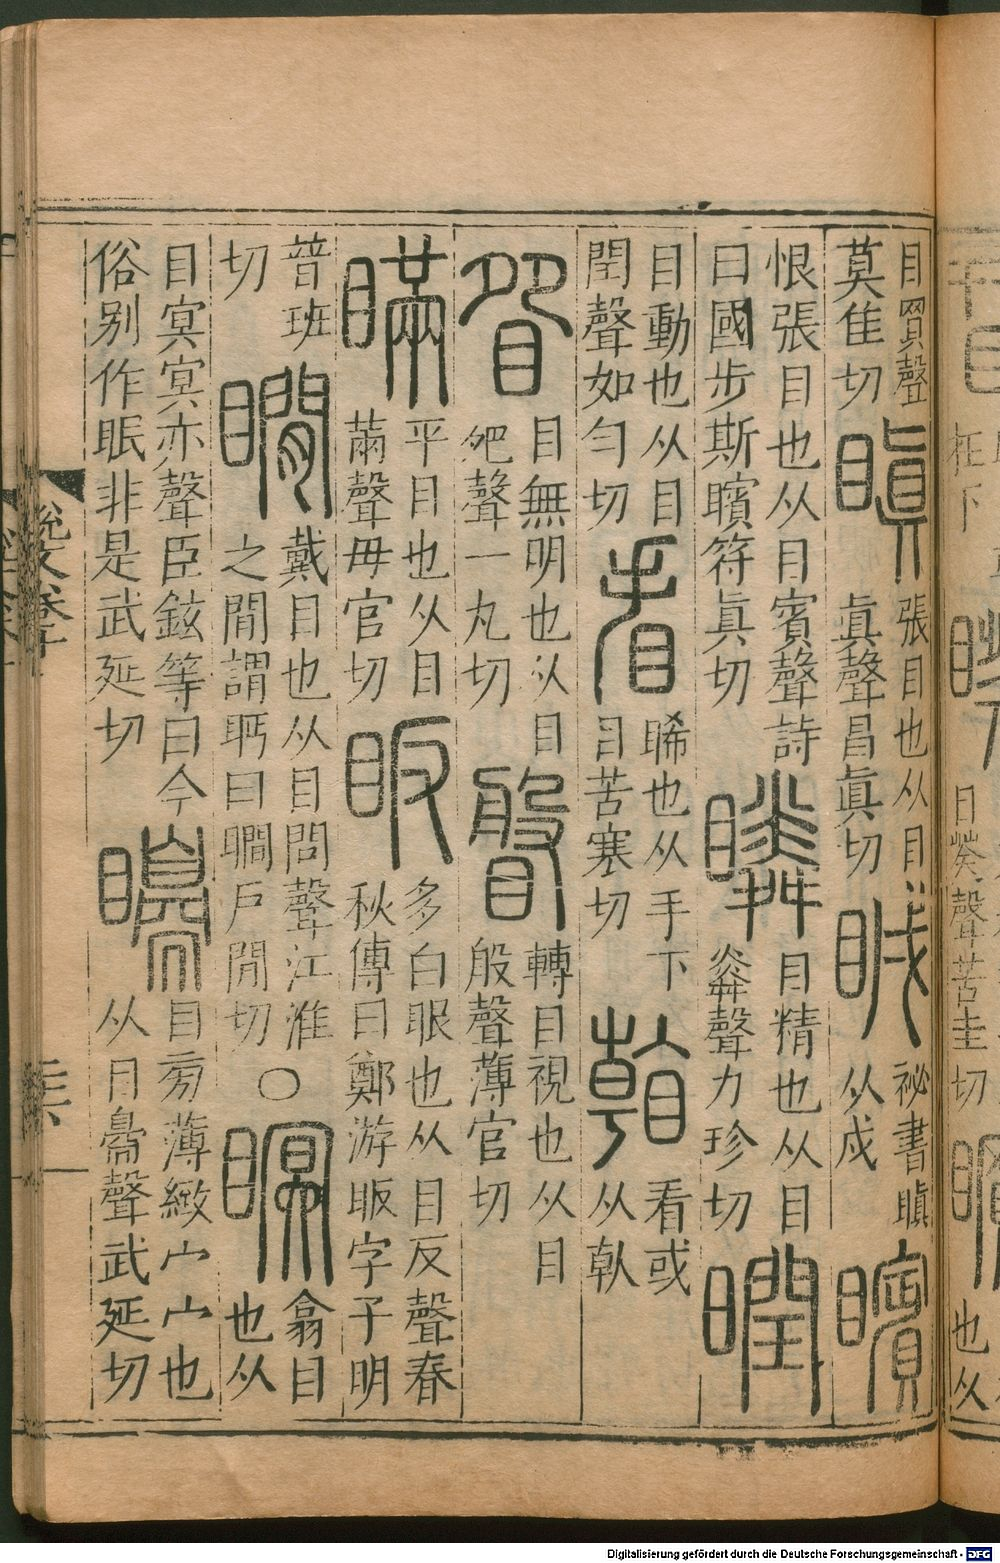 目買聲
莫佳切
瞋
張目也从目
眞聲昌眞切
𥅷
祕書瞋
从戍
矉
恨張目也从目賓聲詩
曰國步斯矉符眞切
瞵
目精也从目
粦聲力珍切
瞤
目動也从目
閏聲如勻切
看
睎也从手下
目苦寒切
𥍉
看或
从倝
眢
目無明也从目
夗聲一丸切
䀨
轉目視也从目
般聲薄官切
瞞
平目也从目
㒼聲毋官切
眅
多白眼也从目反聲春
秋傳曰鄭游眅字子明
普班
切
瞯
戴目也从目閒聲江淮
之閒謂眄曰瞯戶閒切
○
瞑
翕目
也从
目冥冥亦聲臣鉉等曰今
俗别作眠非是武延切
矏
目㫄薄緻宀宀也
从目臱聲武延切
說文卷十
Digitalisierung gefördert durch die Deutsche Forschungsgemeinschaft - DFG